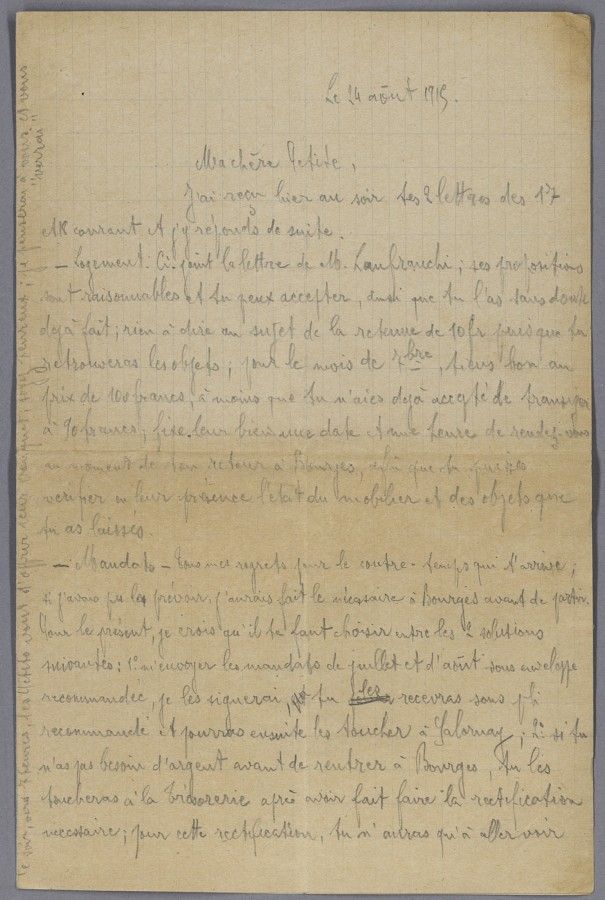 Le 24 août 1915.
Ma chère Petite,
J'ai reçu hier au soir tes 2 lettres des 17
et courant et j'y réponds de suite.
— Logement. Ci-joint la lettre de M. Lanfranchi ; ses propositions
sont raisonnables et tu peux accepter, ainsi que tu l'as sans doute
déjà fait ; rien à dire au sujet de la retenue de 10 fr puisque tu
retrouveras les objets ; pour le mois de 7bre, tiens bon au
prix de 100 francs, à moins que tu n'aies déjà accepté de transiger
à 90 francs ; fixe-leur bien une date et une heure de rendez-vous
au moment de ton retour à Bourges, afin que tu puisses
vérifier en leur présence l'état du mobilier et des objets que
tu as laissés.
— Mandats — Tous mes regrets pour le contre-temps qui t'arrive ;
si j'avais pu le prévoir, j'aurais fait le nécessaire à Bourges avant de partir.
Pour le présent, je crois qu'il te faut choisir entre les 2 solutions
suivantes : 1° m'envoyer les mandats de juillet et d'août sous enveloppe
recommandée, je les signerai, tu les recevras sous pli
recommandé et pourras ensuite les toucher à Salornay ; 2° si tu
n'as pas besoin d'argent avant de rentrer à Bourges, tu les
toucheras à la Trésorerie après avoir fait faire la rectification
nécessaire ; pour cette rectification, tu n'auras qu'à aller voir
ce soir, vers heures, les petits vont ouvrir leur ; je penserai à vous et vous
"verrai"